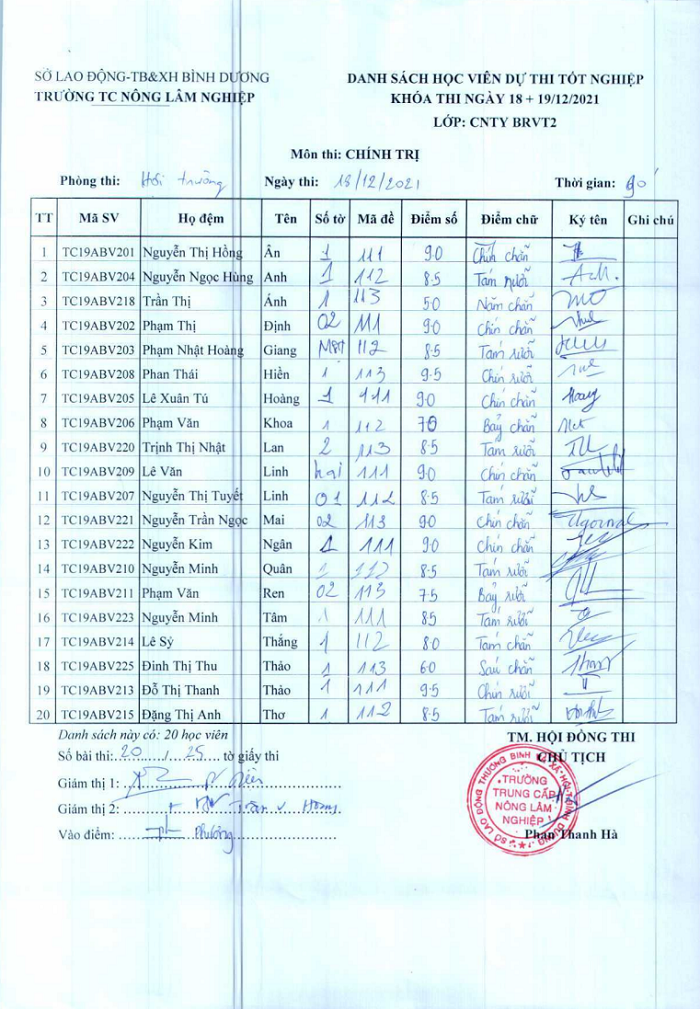 SỞ LAO ĐỘNG-TB&XH BÌNH DƯƠNG
TRƯỜNG TC NÔNG LÂM NGHIỆP
DANH SÁCH HỌC VIÊN DỰ THI TỐT NGHIỆP
KHÓA THI NGÀY 18 + 19/12/2021
LỚP: CNTY BRVT2
Môn thi: CHÍNH TRỊ
Phòng thi: Hội trường Ngày thi: 18/12/2021 Thời gian: 90'
TT Mã SV Họ đệm Tên Số tờ Mã đề Điểm số Điểm chữ Ký tên Ghi chú
1 TC19ABV201 Nguyễn Thị Hồng Ân 1 111 9.0 Chín chẵn
2 TC19ABV204 Nguyễn Ngọc Hùng Anh 1 112 8.5 Tám rưỡi Anh.
3 TC19ABV218 Trần Thị Ánh 1 113 5.0 Năm chẵn
4 TC19ABV202 Phạm Thị Định 02 111 9.0 Chín chẵn
5 TC19ABV203 Phạm Nhật Hoàng Giang Một 112 8.5 Tám rưỡi
6 TC19ABV208 Phan Thái Hiền 1 113 9.5 Chín rưỡi
7 TC19ABV205 Lê Xuân Tú Hoàng 1 111 9.0 Chín chẵn Hoàng
8 TC19ABV206 Phạm Văn Khoa 1 112 7.0 Bảy chẵn
9 TC19ABV220 Trịnh Thị Nhật Lan 2 113 8.5 Tám rưỡi
10 TC19ABV209 Lê Văn Linh hai 111 9.0 Chín chẵn
11 TC19ABV207 Nguyễn Thị Tuyết Linh 01 112 8.5 Tám rưỡi
12 TC19ABV221 Nguyễn Trần Ngọc Mai 02 113 9.0 Chín chẵn
13 TC19ABV222 Nguyễn Kim Ngân 1 111 9.0 Chín chẵn
14 TC19ABV210 Nguyễn Minh Quân 1 112 8.5 Tám rưỡi
15 TC19ABV211 Phạm Văn Ren 02 113 7.5 Bảy rưỡi
16 TC19ABV223 Nguyễn Minh Tâm 1 111 8.5 Tám rưỡi
17 TC19ABV214 Lê Sỹ Thắng 1 112 8.0 Tám chẵn
18 TC19ABV225 Đinh Thị Thu Thảo 1 113 6.0 Sáu chẵn
19 TC19ABV213 Đỗ Thị Thanh Thảo 1 111 9.5 Chín rưỡi
20 TC19ABV215 Đặng Thị Anh Thơ 1 112 8.5 Tám rưỡi
Danh sách này có: 20 học viên
Số bài thi: 20 / 25 tờ giấy thi
Giám thị 1:
Giám thị 2: Trần v.
Vào điểm: Phương
TM. HỘI ĐỒNG THI
CHỦ TỊCH
SỞ LAO ĐỘNG THƯƠNG BINH VÀ XÃ HỘI T. BÌNH DƯƠNG
TRƯỜNG
TRUNG CẤP
NÔNG LÂM
NGHIỆP
Phan Thanh Hà